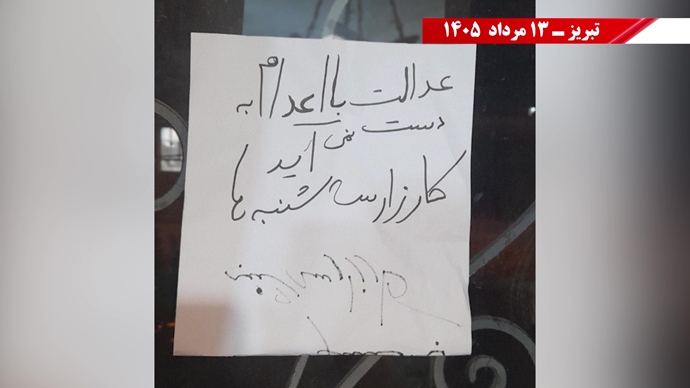 تبریز ـ ۱۳ مرداد ۱۴۰۵
عدالت با اعدام به
دست نمی آید
کارزار سه شنبه ها